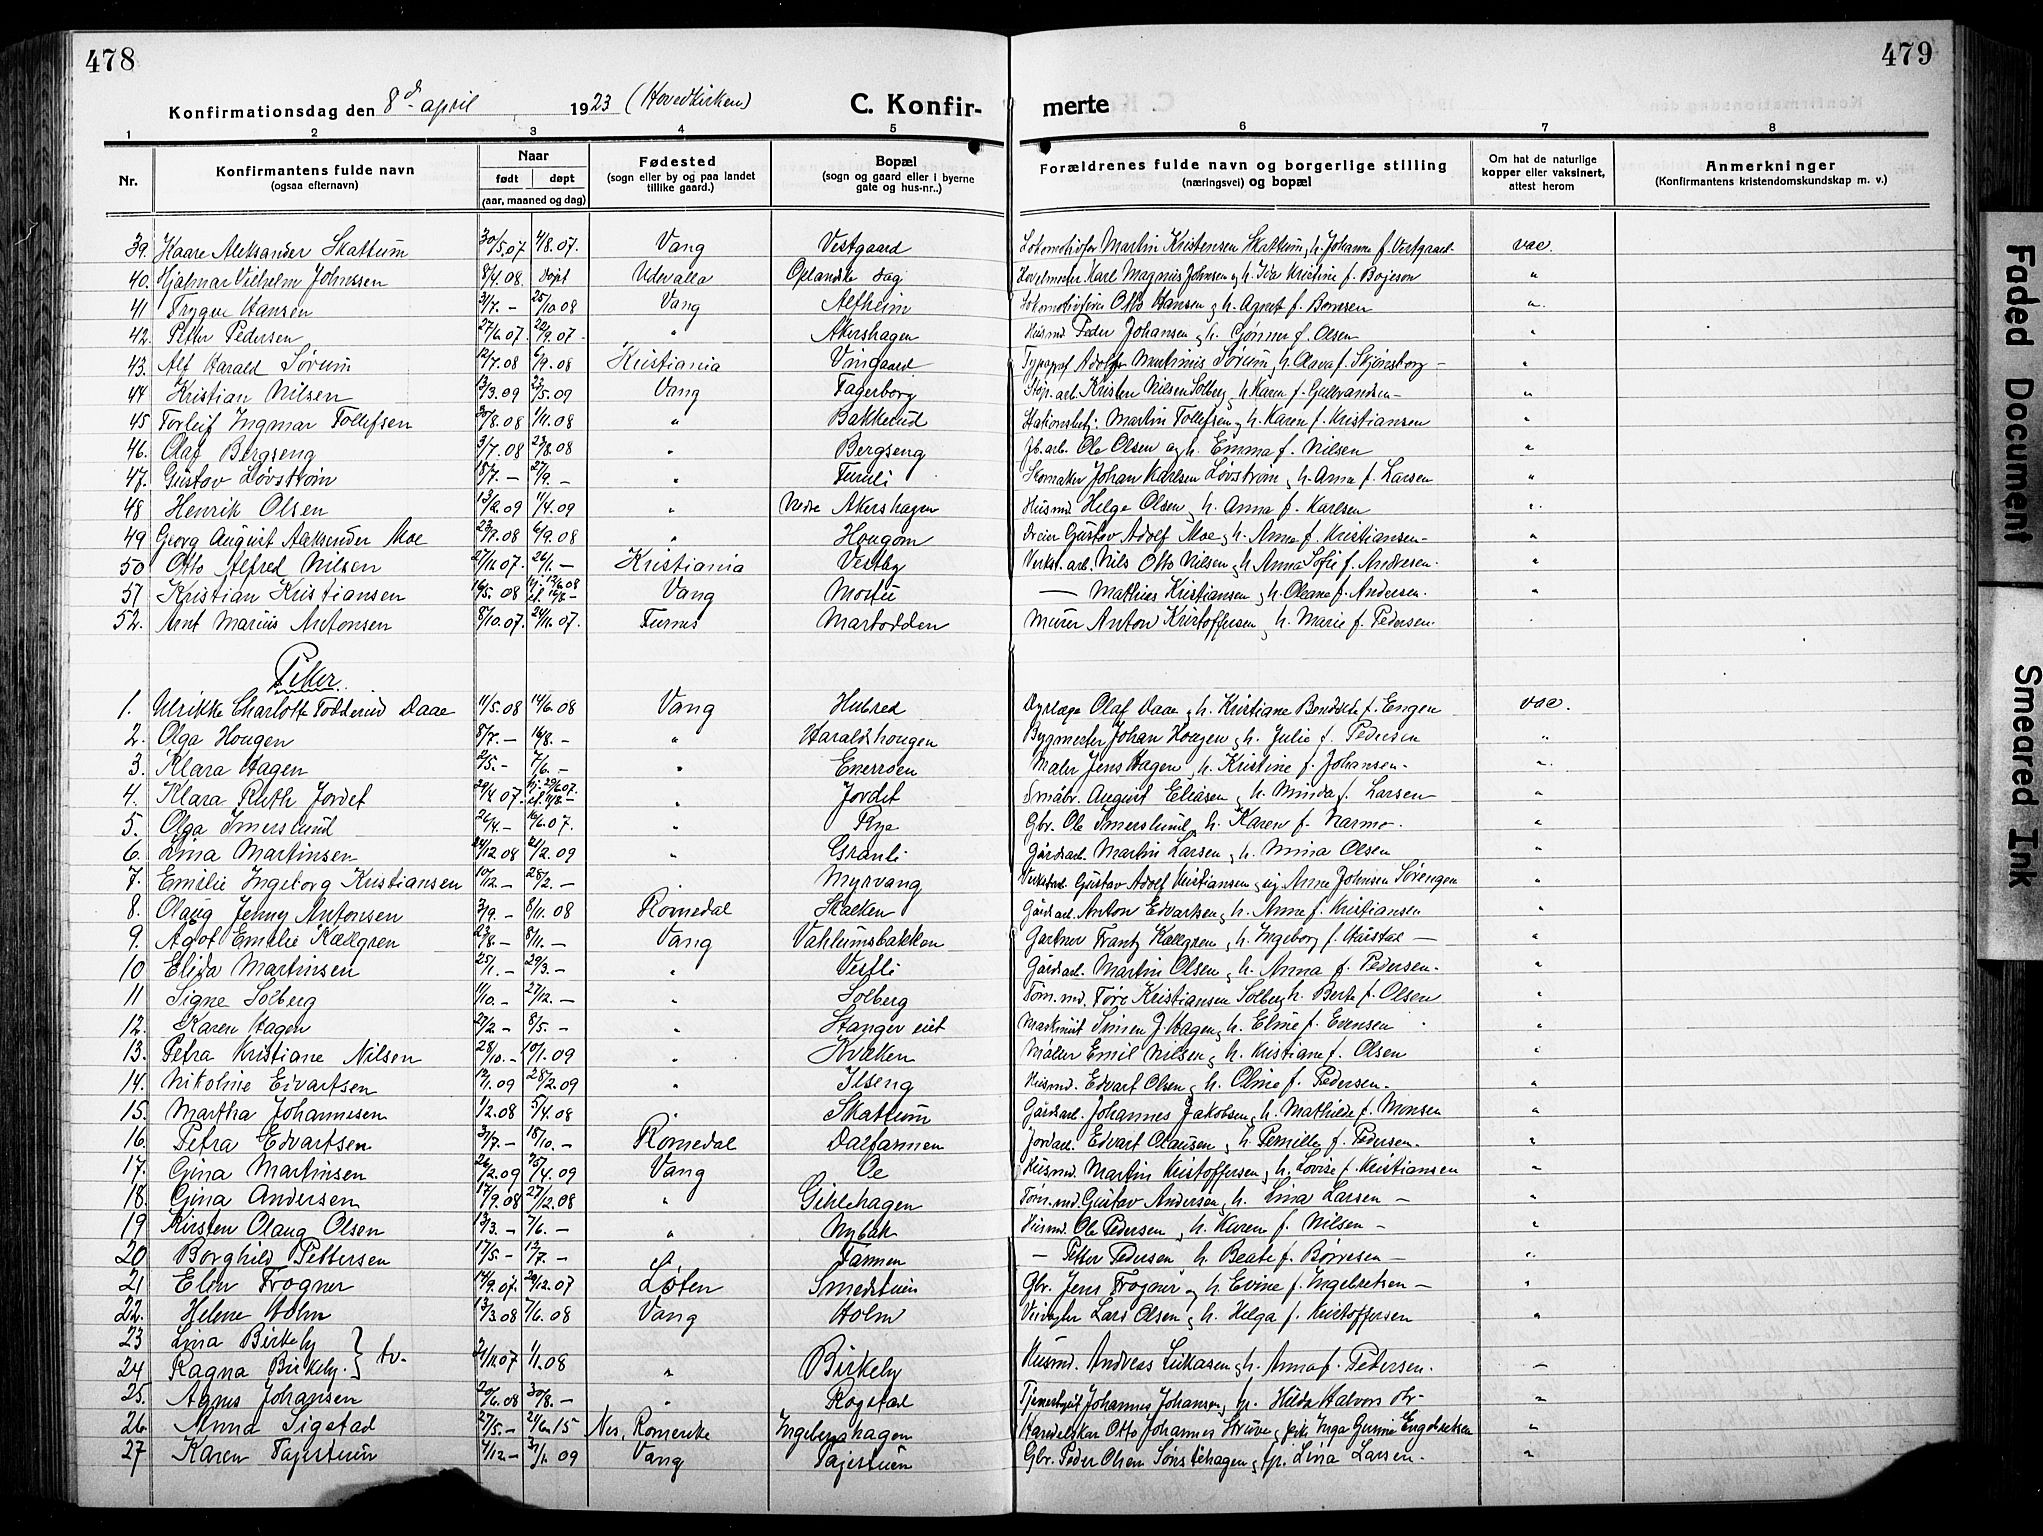 478
479
Konfirmationsdag den 8d. april 1923 (Hovedkirken)
C. Konfir-
merte
1 2 3 4 5 6 7 8
Nr.
Konfirmantens fulde navn
(ogsaa efternavn)
Naar
født døpt
(aar, maaned og dag)
Fødested
(sogn eller by og paa landet
tillike gaard.)
Bopæl
(sogn og gaard eller i byerne
gate og hus-nr..)
Forældrenes fulde navn og borgerlige stilling
(næringsvei) og bopæl
Om hat de naturlige
kopper eller vaksinert,
attest herom
Anmerkninger
(Konfirmantens kristendomskundskap m. v.)
39. Kaare Aleksander Skattum 30/5.07 4/8.07. Vang Vestgaard Lokomotivfør Martin Kristensen Skattum, h. Johanne f. Vestgaard vac.
40. Hjalmar Vilhelm Johnssen 8/4.08. Udevalla Karl Magnus Johnsen og h. Ida Kristine f. Bojeson "
41 Trygve Hansen 3/7. - 25/10 08 Vang Alfheim Otto Hansen og h. Agnet f. Boresen "
42. Petter Pedersen 27/6.07. 22/9.07. " Akershagen Husmd. Peder Johansen og h. Gjønner f. Olsen
43. Alf Harald Sørum 12/7.08 6/9.08 Kristiania Vingaard Typograf Adolf Martinius Sørum, h. Olava f. Skjønsborg - "
44 Kristian Nilsen 13/3.09 23/5.09 Vang Fagerborg Støp. arb. Kristen Nilsen Solberg, h. Karen f. Gulbrandsen - "
45 Torleif Ingmar Tollefsen 30/8.08 1/11.08 " Bakkerud Stationsbetj: Martin Tollefsen og h. Karen f. Kristiansen "
46. Olaf Bergseng 3/7.08 23/8.08 " Bergseng Jb. arb. Ole Olsen og h. Emma f. Nilsen "
47. Gustav Løvstrøm 15/7. - 27/9. - " Furuli Skomaker Johan Karlsen Løvstrøm, h. Anna f. Larsen "
48 Henrik Olsen 13/2.09 11/4.09 " Nedre Akershagen Husmd. Helge Olsen, h. Anna f. Karlsen "
49 Georg August Aleksander Moe 6/9.08 " Hougom Dreier Gustav Adolf Moe, h. Anna f. Kristiansen - "
50 Otto Alfred Nilsen 27/11.07. 26/1. - Kristiania Vestby Verkst. arb. Nils Otto Nilsen og h. Anna Sofie f. Andresen. "
51 Kristian Kristiansen 16/5. 08 Vang - Mathias Kristiansen og h. Oleane f. Andersen. "
52. Arnt Marius Antonsen 8/10.07. 24/11.07. Furnes Martodden Murer Anton Kristoffersen, h. Marie f. Pedersen.
Piker.
1. Ulrikke Charlotte Fodderud Daae 11/5.08 14/6.08 Vang Hubred Dyrlæge Olaf Daae, h. Kristiane Benedikte f. Engen vac.
2. Olga Hougen 5/7. - 16/8. - " Haraldshougen Bygmester Johan Hougen, h. Julie f. Pedersen "
3. Klara Hagen 2/5. - 7/6. - " Enerroen Maler Jens Hagen, h. Kristine f. Johansen. "
4. Klara Ruth Jordet 29/4 07. " Jordet Småbr. August Eliasen og h. Minda f. Larsen "
5. Olga Imerslund 26/4. - 16/6.07. " Rye Gbr. Ole Imerslund, h. Karen f. Narmo. "
6. Lina Martinsen 24/12 08 21/2.09 " Granli Gårdsarb. Martin Larsen, h. Mina Olsen "
7. Emilie Ingeborg Kristiansen 10/12 - 28/2. - Myrvang Gustav Adolf Kristiansen og Anne Johnsen Sørengen "
8. Olaug Jenny Antonsen 3/9. - 8/11. 08 Romedal Skalken Gårdsarb. Anton Edvartsen, h. Anne f. Kristiansen "
9. Agot Emilie Kællgren 23/8. - 8/11. - Vang Vahlumsbakken Gartner Frantz Kællgren, h. Ingeborg f. Harstad - "
10 Elida Martinsen 25/1. - 29/3. - " Vestli Gårdsarb. Martin Olsen, h. Anna f. Pedersen. "
11 Signe Solberg 11/10. - 27/12. - " Solberg Tøm. md. Tore Kristiansen Solberg, h. Berte f. Olsen "
12. Karen Hagen 27/2 - 8/5. - " Stanger eiet Simen J. Hagen, h. Eline f. Evensen "
13. Petra Kristiane Nilsen 28/10. - 10/1.09 " Kvæken Møller Emil Nilsen, h. Kristiane f. Olsen "
14. Nikoline Edvartsen 12/1.09 28/2.09 " Ilseng Husmd. Edvart Olsen, h. Oline f. Pedersen. "
15. Martha Johannesen 1/2.08 5/4.08 " Skattum Gårdsarb. Johannes Jakobsen, h. Mathilde f. Monsen "
16. Petra Edvartsen 31/7. - 18/10. - Romedal Dalfarmen Jordarb. Edvart Olausen, h. Pernille f. Pedersen. "
17. Gina Martinsen 26/2.09 25/4.09 Vang Oe Husmd. Martin Kristoffersen, h. Lovise f. Kristiansen "
18. Gina Andersen 17/9.08 27/12.08 " Gihlehagen Tøm. md. Gustav Andersen, h. Lina Larsen - "
19 Kirsten Olaug Olsen 13/3. - 7/6. - " Nybak Husmd. Ole Pedersen, h. Karen f. Nilsen - "
20 Borghild Pettersen 17/5. - 12/7. - " Farmen - Petter Pedersen h. Beate f. Børresen - "
21 Elen Frogner 14/9.07. 29/12.07 Løten Smedstuen Gbr. Jens Frogner og h. Evine f. Ingebretsen - "
22. Helene Holm 13/3.08 7/6.08 Vang Holm Lars Olsen, h. Helga f. Kristoffersen "
23 Lina Birkely
24 Ragna Birkely. } tv. 21/11.07 1/1.08 " Birkely Husmd. Andreas Lukasen, h. Anna f. Pedersen. -
25. Agnes Johansen 20/6.08 30/8. - " Rogstad Johannes Johansen, Hilda Halvors dtr - "
26 Anna Sigstad 27/5. - 27/6.15 Nes, Romerike Ingeborghagen Otto Johannes Struve, Inga Gunine Engebretsen "
27 Karen Fajestuen 4/12. - 31/1.09 Vang Fajestuen Gbr. Peder Olsen Sønstehagen, Lina Larsen. "
Faded Document
Smeared Ink